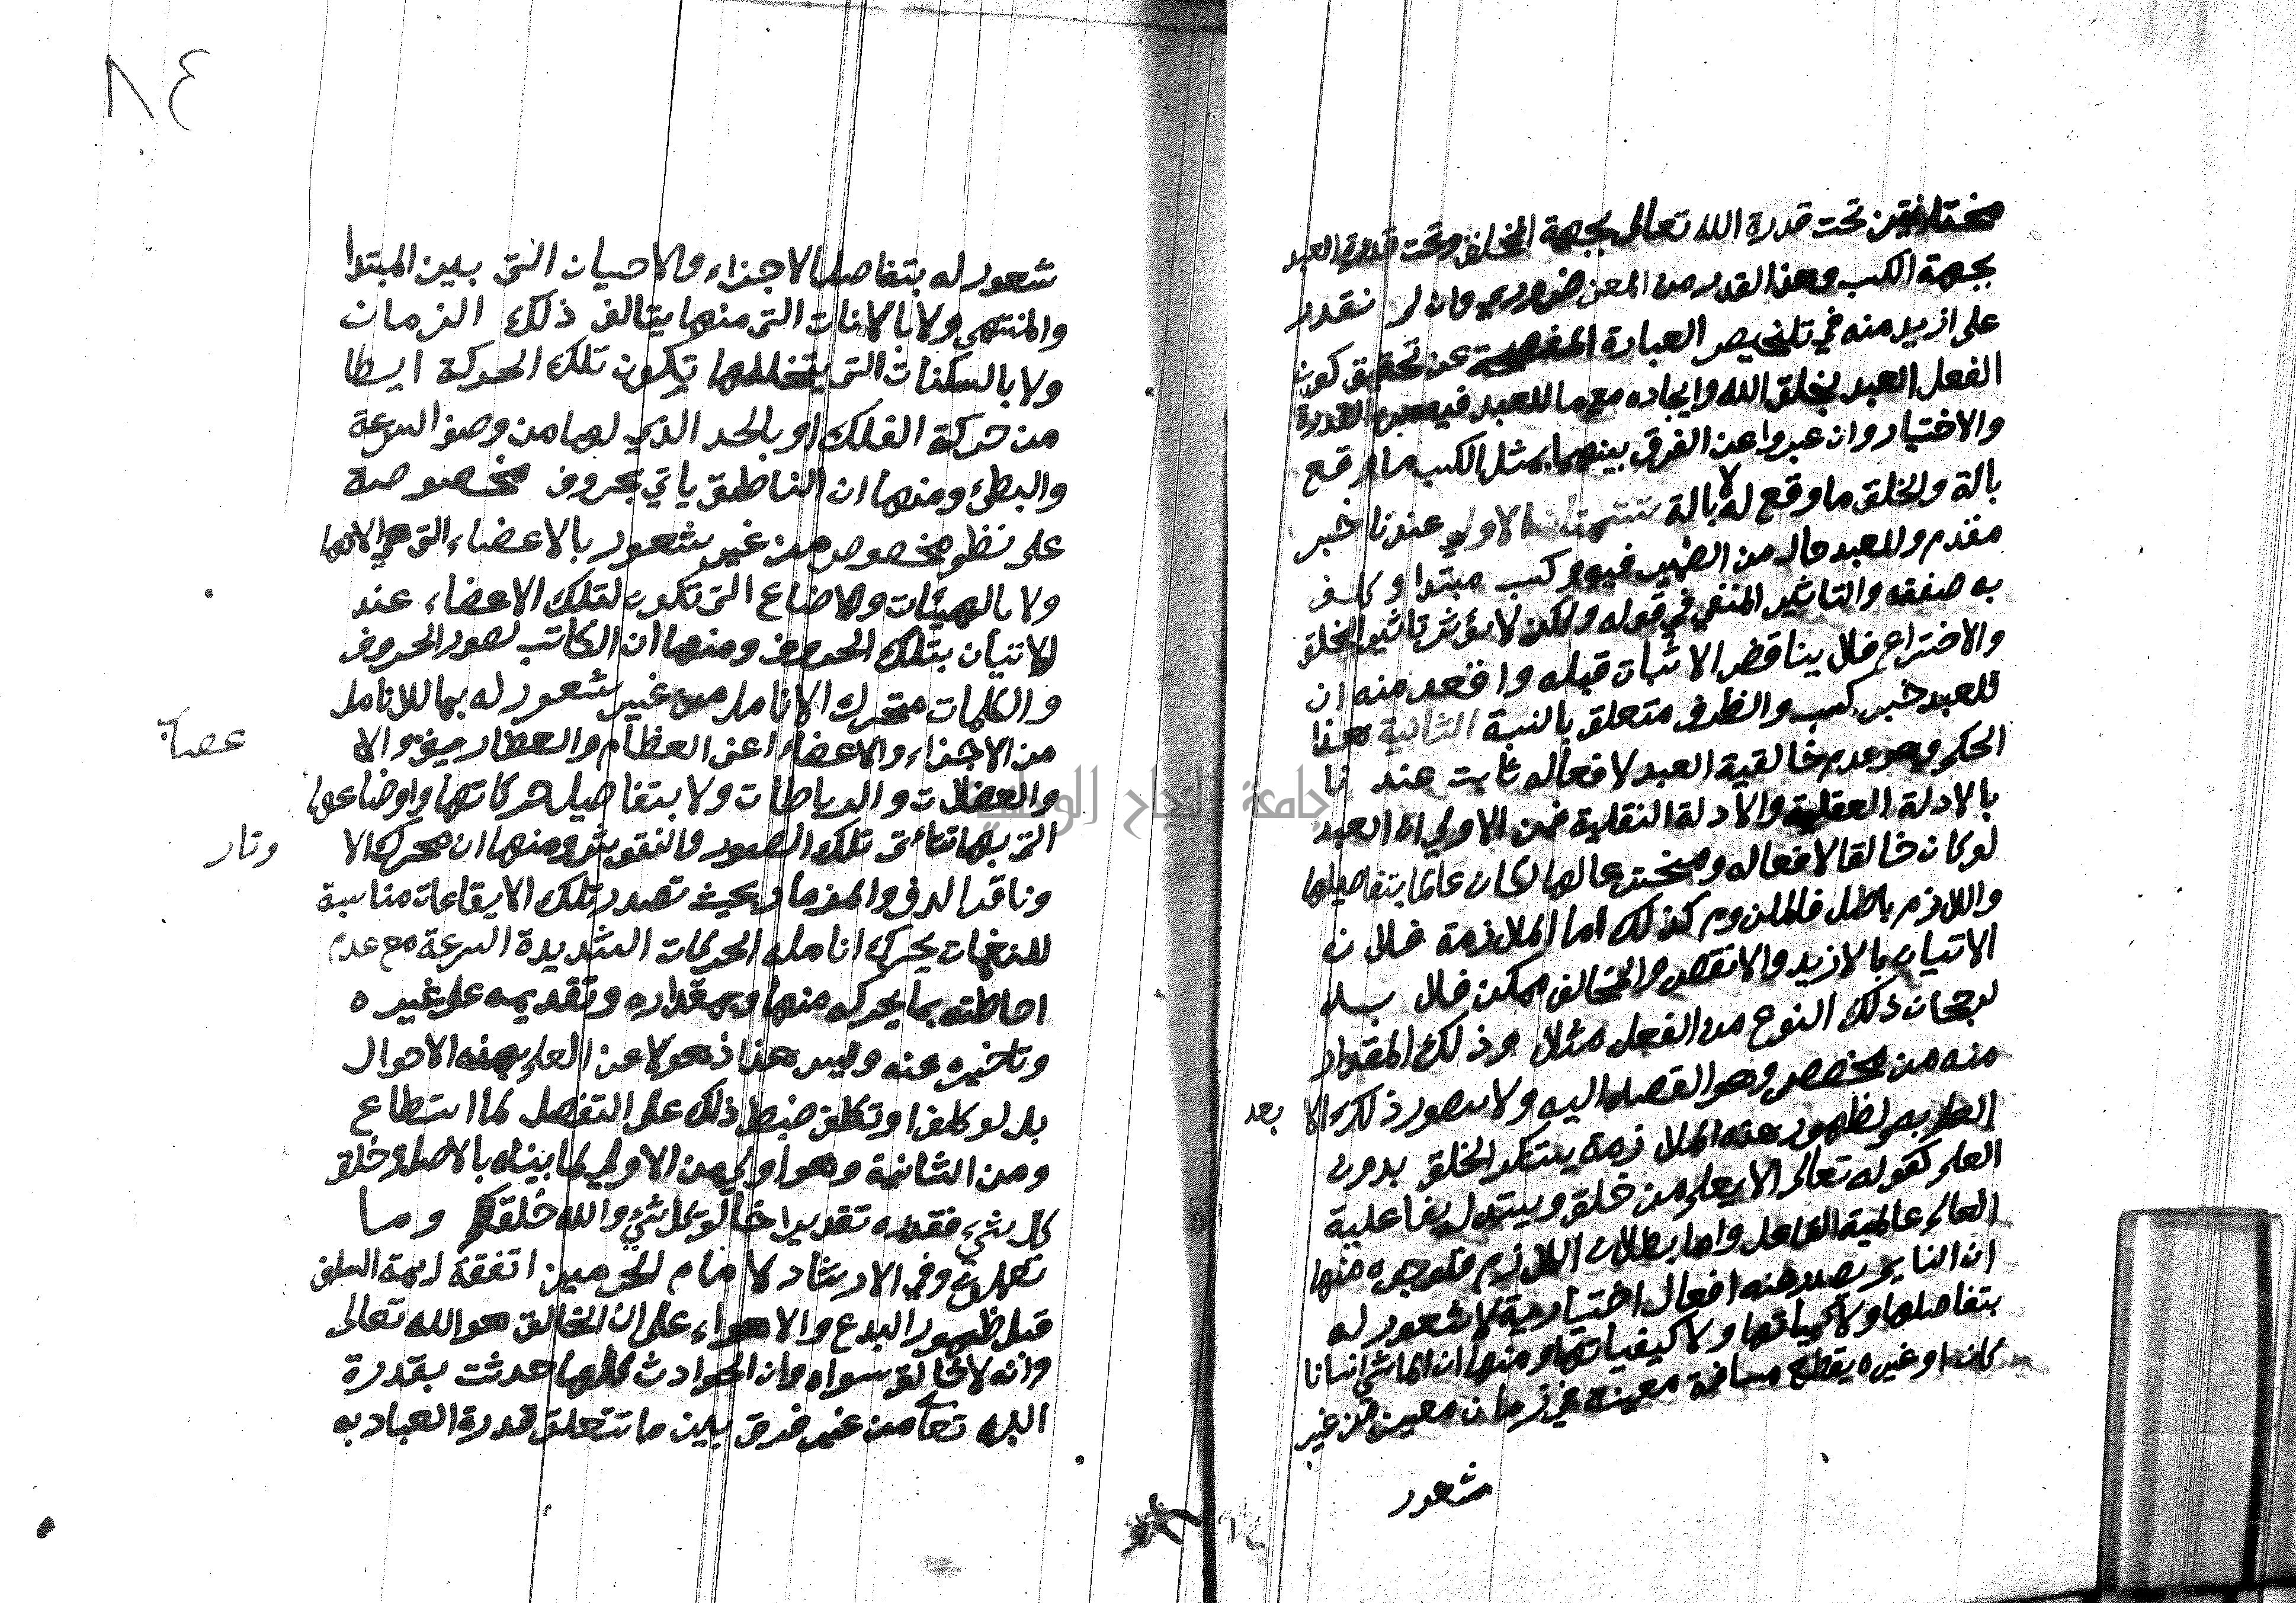 مختلفتين تحت قدرة الله تعالى بجهة الخلق وتحت قدرة العبد
بجهة الكسب وهذا القدر من المعنى ضروري وان لم نقدر
على ازيد منه في تلخيص العبارة المفصحة عن تحقيق كون
الفعل العبد بخلق الله وايجاده مع ما للعبد فيه من القدرة
والاختيار وان عبروا عن الفرق بينهما بمثل الكسب ما وقع
بالة والخلق ما وقع له لا بالة الاولى عندنا خبر
مقدم وللعبد حال من الضمير فيه وكسب مبتدا وكلف
به صفته والتاثير المنفي في قوله ولكن لا يؤثر تاثير الخلق
والاختراع فلا يناقض الاثبات قبله واقعد منه ان
للعبد خبر كسب والظرف متعلق بالنسبة الثانية هذا
الحكم وهو عدم خالقية العبد لافعاله ثابت عند نا
بالادلة العقلية والادلة النقلية فمن الاولى ان العبد
لو كان خالقا لافعاله ومخترعا لها لكان عالما بتفاصيلها
واللازم باطل فالملزوم كذلك اما الملازمة فلان
الاتيان بالازيد والانقص والمخالف ممكن فلا بد
لرجحان ذلك النوع من الفعل مثلا وذلك المقدار
منه من مخصص وهو القصد اليه ولا يتصور ذلك الا بعد
العلم به ولظهور هذه الملازمة يستنكر الخلق بدون
العلم كقوله تعالى الا يعلم من خلق ويستدل بفاعلية
العالم عالمية الفاعل واما بطلان اللازم فلوجوه منها
ان النايم تصدر منه افعال اختيارية لا شعور له
بتفاصيلها ولا كمياتها ولا كيفياتها ومنها ان الماشي انسانا
كان او غيره يقطع مسافة معينة في زمان معين من غير
شعور
٨٤
شعور له بتفاصيل الاجزاء والاحيان التى بين المبتدا
والمنتهى ولا بالانات التى منها يتالف ذلك الزمان
ولا بالسكنات التى يتخللها تكون تلك الحركة ابطا
من حركة الفلك او بالحد الذي لها من وصف السرعة
والبطئ ومنها ان الناطق ياتي بحروف مخصوصة
على نظم مخصوص من غير شعور بالاعضاء التى هي الاتها
ولا بالهيئات والاضاع التى تكون لتلك الاعضاء عند
الاتيان بتلك الحروف ومنها ان الكاتب يصور الحروف
والكلمات متحرك الانامل من غير شعور له بما للانامل
من الاجزاء والاعضاء اعنى العظام والغظاريف والا عصاب
والعضلات والرباطات ولا بتفاصيل حركاتها واوضاعها
التى بها تتاتى تلك الصور والنقوش ومنها ان محرك الا وتار
وناقر الدف والمزمار بحيث تصدر تلك الايقاعات مناسبة
للنغمات يحرك انامله الحركات الشديدة السرعة مع عدم
احاطته بما يحركه منها وبمقداره وتقديمه على غيره
وتاخيره عنه وليس هذا ذهولا عن العلم بهذه الاحوال
بل لو كلف او تكلف ضبط ذلك على التفصيل لما استطاع
ومن الثانية وهو اولى من الاولى لما بيناه بالاصل وخلق
كل شيء فقدره تقديرا خالق كل شيء والله خلقكم وما
تعملون وفي الارشاد لامام الحرمين اتفقة ايمة السلف
قبل ظهور البدع والاهواء على ان الخالق هو الله تعالى
وانه لا خالق سواه وان الحوادث كلها حدثت بقدرة
الله تعا من غير فرق بين ما تتعلق قدرة العباد به
جامعة النجاح الوطنية